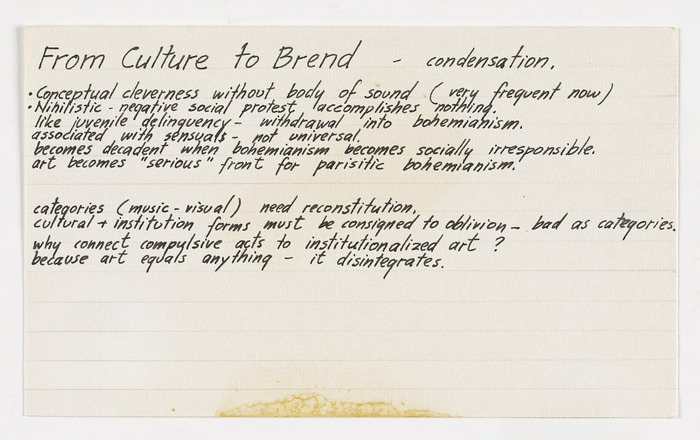 From Culture to Brend - condensation.
• Conceptual cleverness without body of sound (very frequent now)
• Nihilistic - negative social protest, accomplishes nothing.
like juvenile delinquency - withdrawal into bohemianism.
associated with sensuals - not universal.
becomes decadent when bohemianism becomes socially irresponsible.
art becomes "serious" front for parisitic bohemianism.
categories (music - visual) need reconstitution.
cultural + institution forms must be consigned to oblivion - bad as categories.
why connect compulsive acts to institutionalized art ?
because art equals anything - it disintegrates.